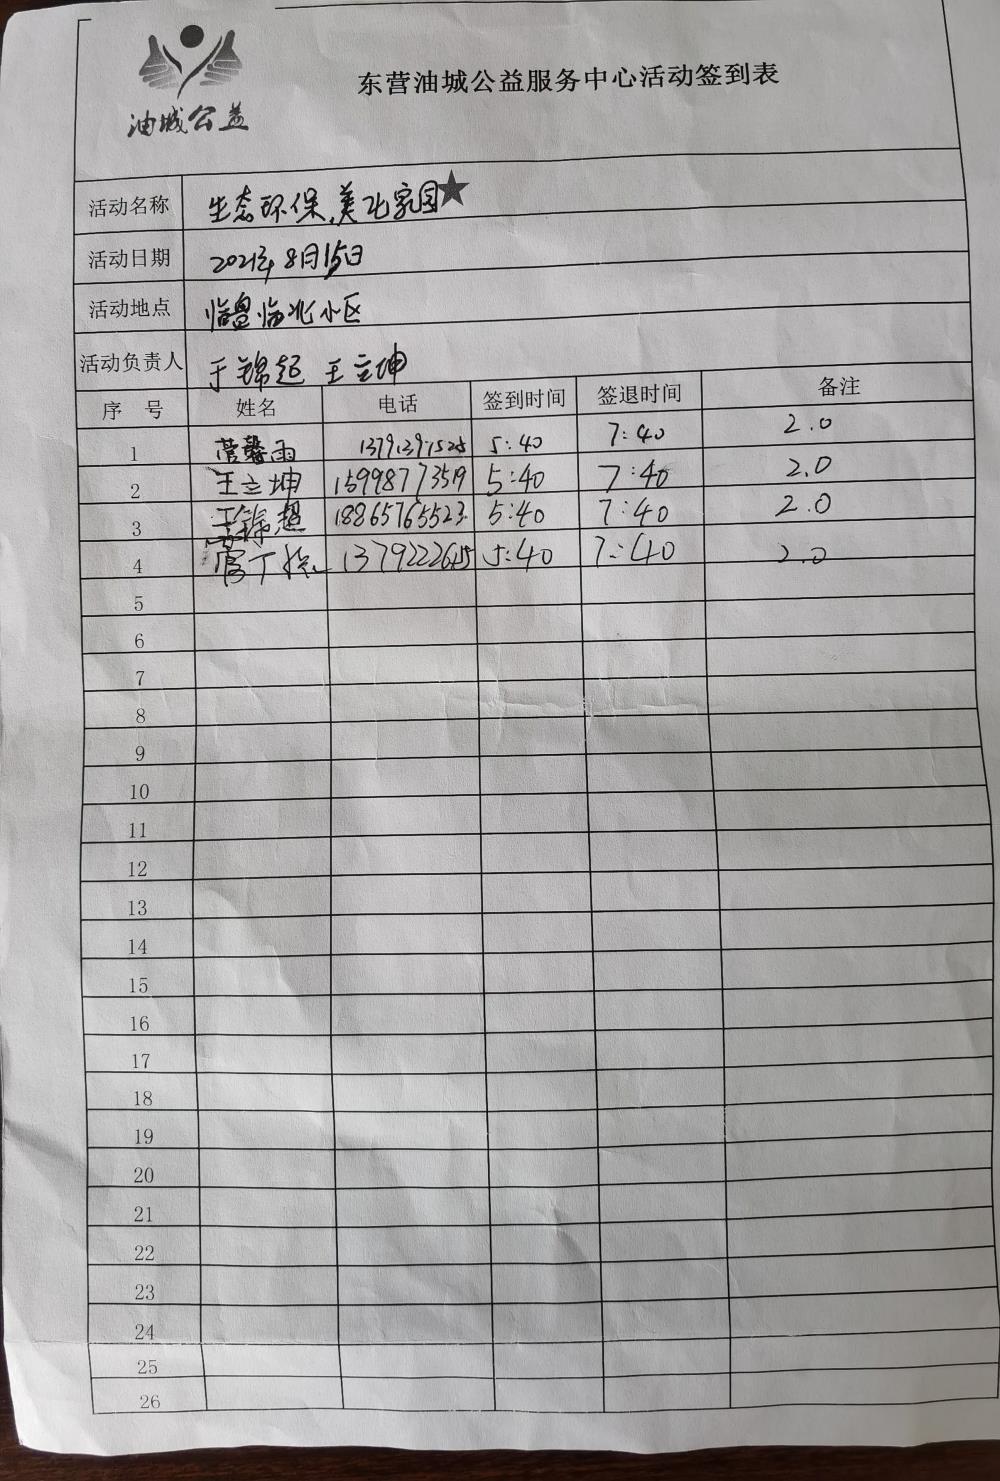 油城公益
东营油城公益服务中心活动签到表
活动名称 生态环保,美化家园★
活动日期 2021年8月15日
活动地点 临盘临北小区
活动负责人 于锦起 王立坤
序 号 姓名 电话 签到时间 签退时间 备注
1 菅馨雨 5:40 7:40 2.0
2 王立坤 15998773519 5:40 7:40 2.0
3 18865765523 5:40 7:40 2.0
4 5:40 7:40 2.0
5
6
7
8
9
10
11
12
13
14
15
16
17
18
19
20
21
22
23
24
25
26